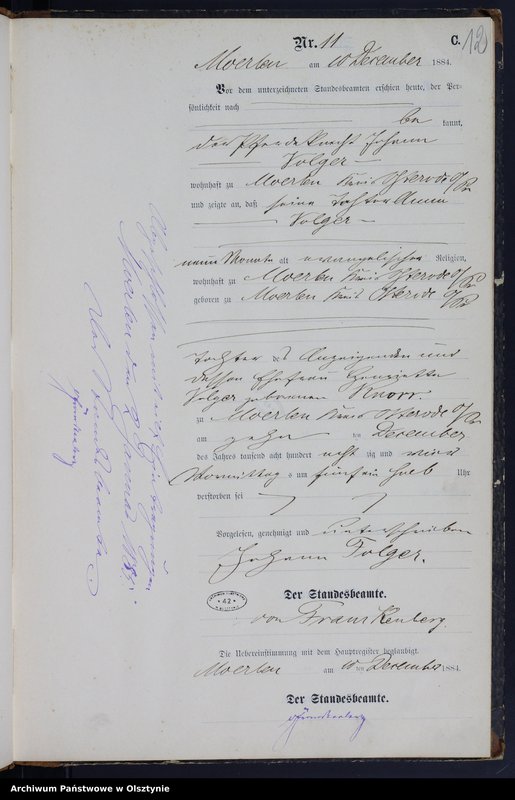 Nr. 11
C.
12
Moerlen am 10 December 1884.
Vor dem unterzeichneten Standesbeamten erschien heute, der Per-
sönlichkeit nach
be kannt,
der Pferdeknecht Johann
Folger
wohnhaft zu Moerlen Kreis Osterode O/Pr
und zeigte an, daß seine Tochter Anna
Folger
neun Monate alt evangelischer Religion,
wohnhaft zu Moerlen Kreis Osterode O/Pr
geboren zu Moerlen Kreis Osterode O/Pr
Tochter des Anzeigenden und
dessen Ehefrau Henriette
Folger geborenen Knorr.
zu Moerlen Kreis Osterode O/Pr
am zehn ten December
des Jahres tausend acht hundert acht zig und vier
Vormittag s um fünfein halb Uhr
verstorben sei
Vorgelesen, genehmigt und unterschrieben
Johann Folger.
Der Standesbeamte.
von Frankenberg.
Die Uebereinstimmung mit dem Hauptregister beglaubigt.
Moerlen am 10 ten December 1884.
Der Standesbeamte.
42
Moerlen den 2 Januar 1885.
Der Standesbeamte
Archiwum Państwowe w Olsztynie